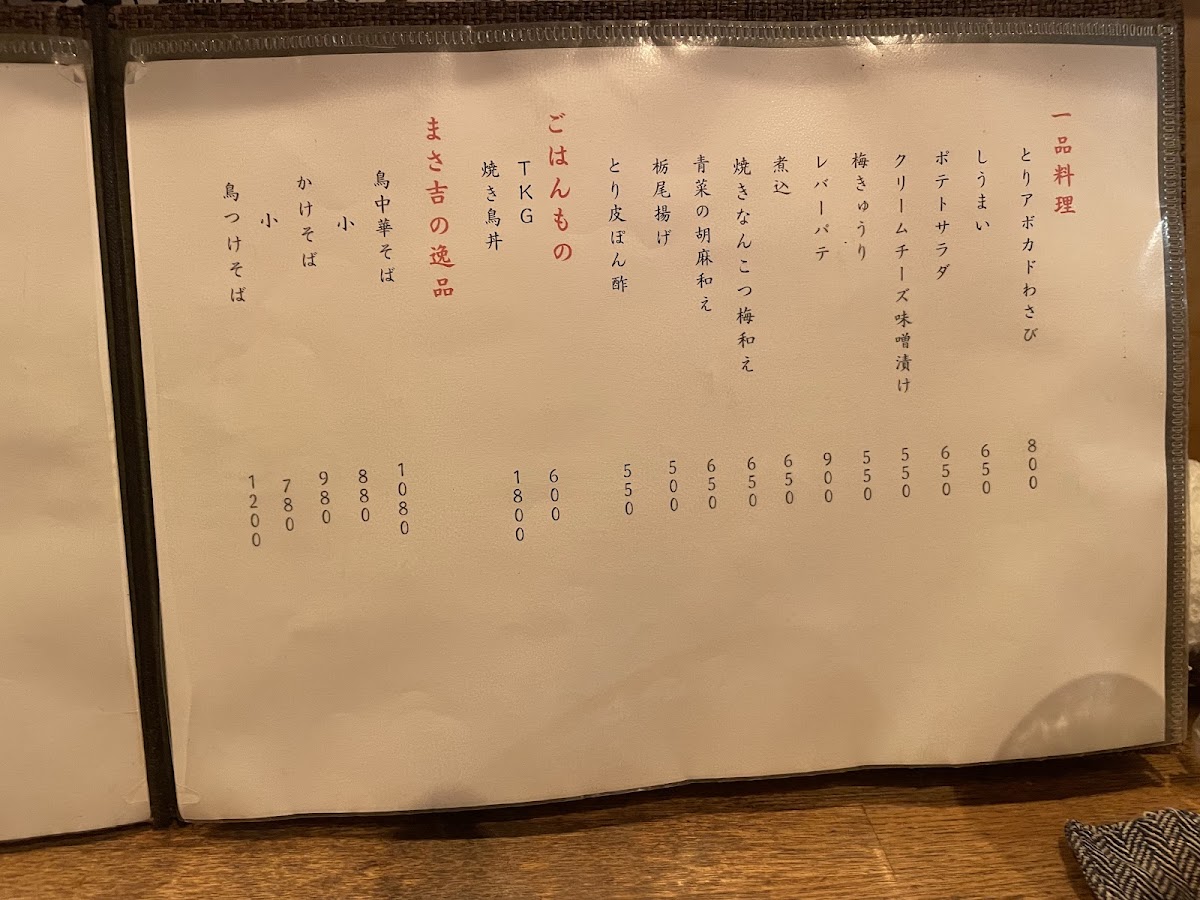 一品料理
とりアボカドわさび 800
しうまい 650
ポテトサラダ 650
クリームチーズ味噌漬け 550
梅きゅうり 550
レバーパテ 900
煮込 650
焼きなんこつ梅和え 650
青菜の胡麻和え 650
栃尾揚げ 500
とり皮ぽん酢 550
ごはんもの
TKG 600
焼き鳥丼 1800
まさ吉の逸品
鳥中華そば 1080
小 880
かけそば 980
小 780
鳥つけそば 1200